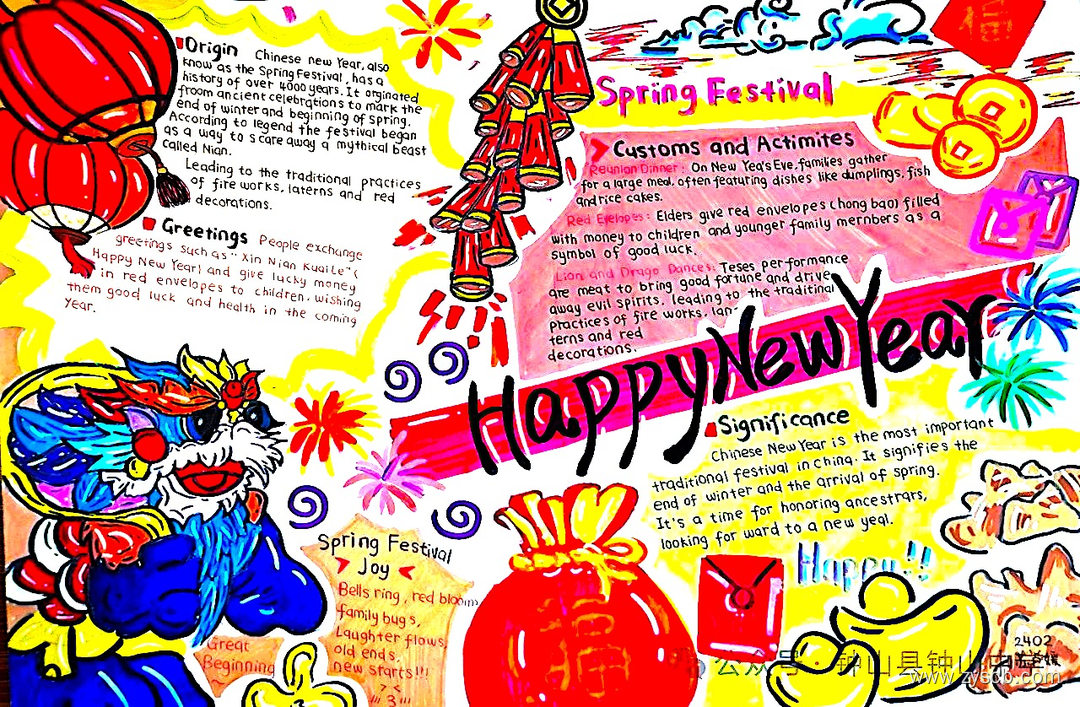 Origin Chinese new Year, also
know as the Spring Festival, has a
history of over 4000 years. It orginated
froom ancient celebrations to mark the
end of winter and beginning of spring.
According to legend the festival began
as a way to scare away a mythical beast
called Nian.
Leading to the traditional practices
of fire works, laterns and red
decorations.
Greetings People exchange
greetings such as "Xin Nian Kuaile" (
Happy New Year) and give lucky money
in red envelopes to children, wishing
them good luck and health in the coming
Year.
福
Spring Festival
Customs and Actimites
Reunion Dinner: On New Yea's Eve, families gather
for a large meal, often featuring dishes like dumplings, fish
and rice cakes.
Red Evelopes: Elders give red envelopes (hong bao) filled
with money to children and younger family mernbers as a
symbol of good luck.
Lion and Drago Dances: Teses performance
are meat to bring good fortune and drive
away evil spirits, leading to the traditinal
practices of fire works, lan-
terns and red
decorations.
Happy New Year
Significance
Chinese New Year is the most important
traditional festival in china. It signifies the
end of winter and the arrival of spring.
It's a time for honoring ancestrars,
looking for ward to a new yeal.
Spring Festival
Joy
Bells ring, red bloom
family bug s,
Laughter flows
old ends,
new starts!!!
Great
Beginning
福
Happy!!
2402
公众号·钟山县钟山中学
www.zyscb.com